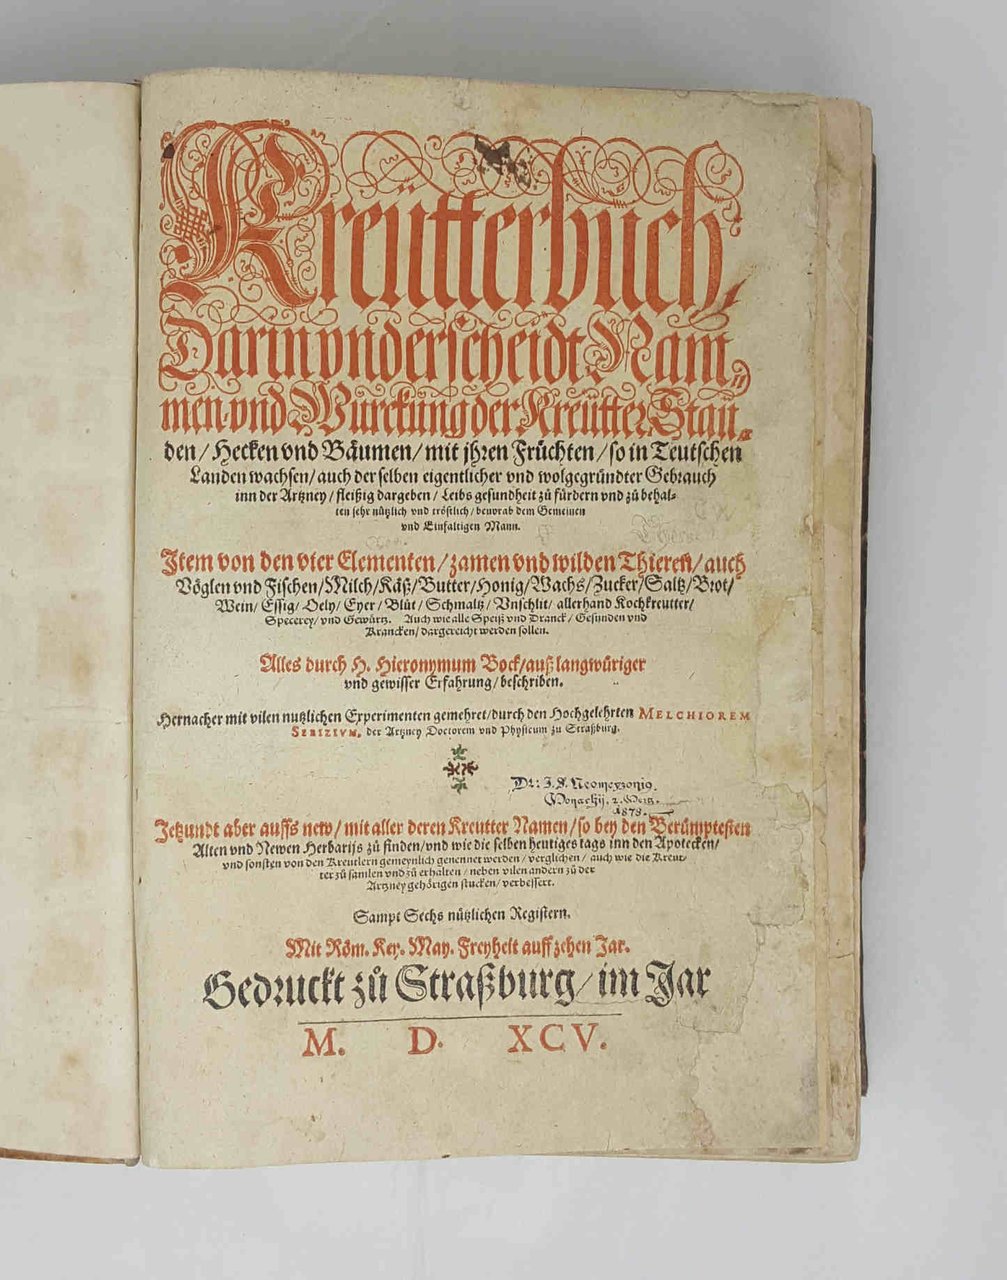 Kreütterbuch,
Darin underscheidt Nam⸗
men vnd Würckung der Kreütter, Stau⸗
den / Hecken vnd Bäumen / mit jhren Früchten / so in Teutschen
Landen wachsen / auch der selben eigentlicher vnd wolgegründter Gebrauch
inn der Artzney / fleißig dargeben / Leibs gesundheit zů fürdern vnd zů behal⸗
ten sehr nützlich vnd tröstlich / beuorab dem Gemeinen
vnd Einfaltigen Mann.
Item von den vier Elementen / zamen vnd wilden Thieren / auch
Vöglen vnd Fischen / Milch / Käß / Butter / Honig / Wachs / Zucker / Saltz / Brot /
Wein / Essig / Oely / Eyer / Blůt / Schmaltz / Vnschlit / allerhand Kochkreutter /
Specerey / vnd Gewürtz. Auch wie alle Speiß vnd Dranck / Gesunden vnd
Krancken / dargereicht werden sollen.
Alles durch H. Hieronymum Bock / auß langwüriger
vnd gewisser Erfahrung / beschriben.
Hernacher mit vilen nutzlichen Experimenten gemehret / durch den Hochgelehrten MELCHIOREM
SEBIZIVM, der Artzney Doctorem vnd Physicum zu Straßburg.
Dr: J. N.
Monachij. 2.
1878.
Jetzundt aber auffs new / mit aller deren Kreutter Namen / so bey den Berümptesten
Alten vnd Newen Herbarijs zů finden / vnd wie die selben heutiges tags inn den Apotecken /
vnd sonsten von den Kreutlern gemeynlich genennet werden / verglichen / auch wie die Kreut⸗
ter zů samlen vnd zů erhalten / neben vilen andern zů der
Artzney gehörigen stucken / verbessert.
Sampt Sechs nützlichen Registern.
Mit Röm. Key. May. Freyheit auff zehen Jar.
Gedruckt zů Straßburg / im Jar
M. D. XCV.